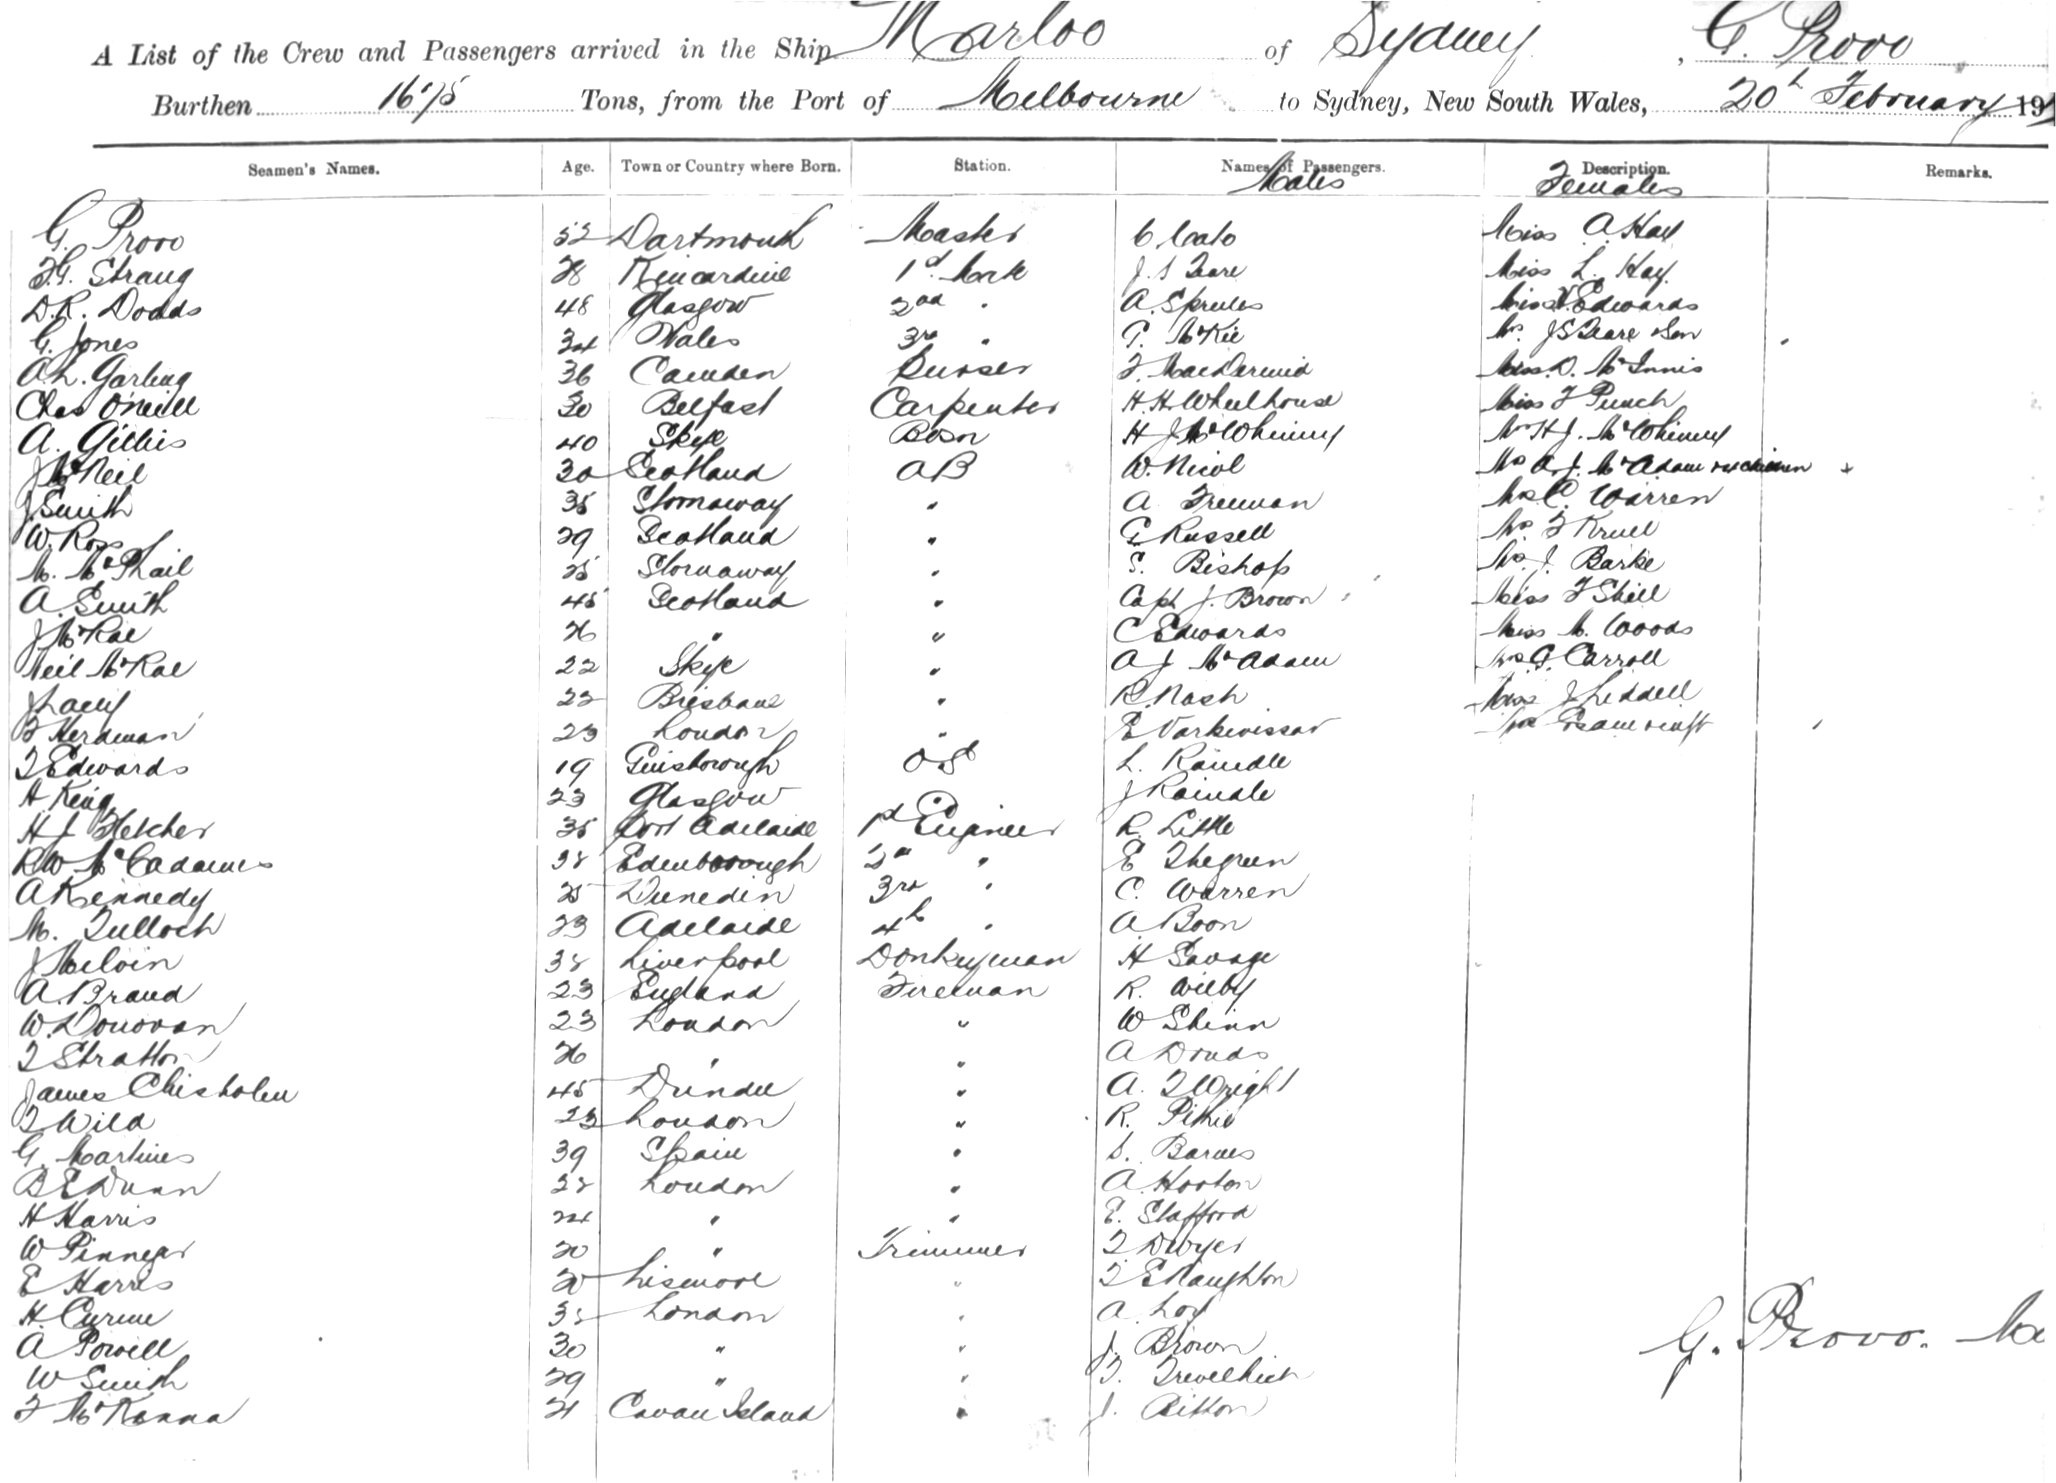 A List of the Crew and Passengers arrived in the Ship Marloo of Sydney, G. Provo
Burthen 1675 Tons, from the Port of Melbourne to Sydney, New South Wales, 20th February 191
Seamen's Names. Age. Town or Country where Born. Station. Names of Passengers. Description. Remarks.
Males Females
G. Provo 52 Dartmouth Master C. Cato Miss A. Hay
F.G. Strang 28 Kincardine 1st Mate J. S Teare Miss L. Hay
D.R. Dodds 48 Glasgow 2nd " A. Sprules Miss V Edwards
G. Jones 34 Wales 3rd " G. McKie Mrs J S Teare & Son
A.L. Garling 36 Camden Purser F. MacDermid Miss D. McInnis
Chas O'Neill 30 Belfast Carpenter H. H. Wheelhouse Miss F Punch
A. Gillies 40 Skye Bosn H J McWhinny Mrs H J. McWhinny
J McNeil 30 Scotland AB W. Nicol Mrs A. J. McAdam
J Smith 35 Stornaway " A Freeman Mrs C. Warren
W. Ross 29 Scotland " G. Russell Mrs F Krull
M. McPhail 25 Stornaway " S. Bishop Mrs J. Barke
A. Smith 45 Scotland " Capt J. Brown Miss F Shiel
J McRae 26 " " C Edwards Miss M. Woods
Neil McRae 22 Skye " A J McAdam Mrs G. Carroll
J Lacey 22 Brisbane " R. Nash Miss J Liddell
F Herdman 23 London " E Varkevissar Mrs
T Edwards 19 Guisborough OS L. Raindle
A King 23 Glasgow J Raindle
H J Fletcher 35 Port Adelaide 1st Engineer R. Little
R W McCadames 38 Edenborough 2nd " E Thegreen
A Kennedy 25 Dunedin 3rd " C. Warren
M. Tulloch 23 Adelaide 4th " A Boon
J Melvin 38 Liverpool Donkeyman H Savage
A. Brand 23 England Fireman R. Wilby
W. Donovan 23 London " W Shinn
T Stratton 26 " " A Dodds
James Chisholm 45 Dundee " A. T Wright
T Wild 23 London " R. Pithie
G. Martines 39 Spain " S. Barnes
B E Dunn 28 London " A. Horton
H Harris 24 " " E. Stafford
W Pinneger 20 " Trimmer T Dwyer
E Harris 20 Lismore " T E Naughton
H. Curme 38 London " A. Loy
A Powell 30 " " J. Brown
W Smith 29 " " T. Trevelhick
F McKanna 21 Cavan Island " J. Bitton
G. Provo. Ma